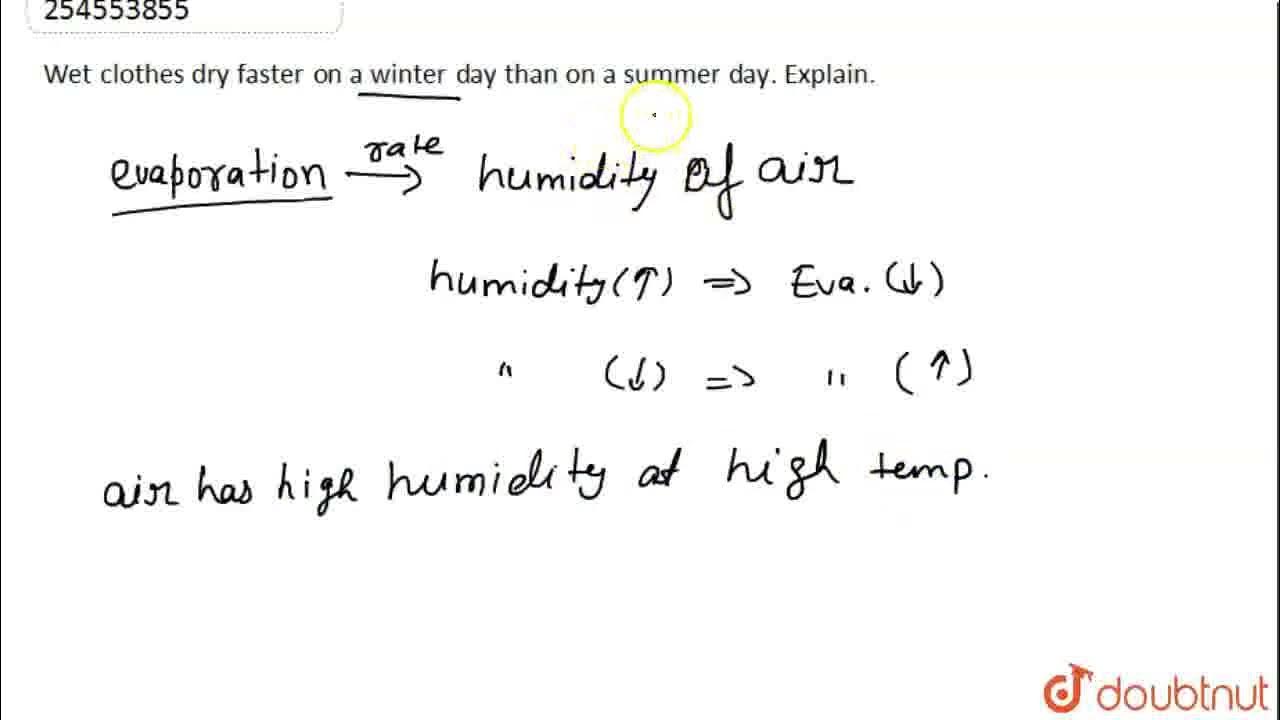 254553855
Wet clothes dry faster on a winter day than on a summer day. Explain.
evaporation rate → humidity of air
humidity (↑) ⇒ Eva. (↓)
" (↓) ⇒ " (↑)
air has high humidity at high temp.
doubtnut